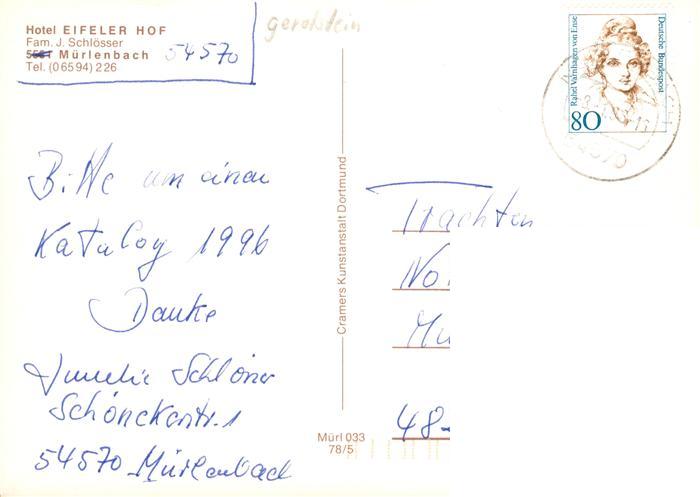 Hotel EIFELER HOF
Fam. J. Schlösser
Mürlenbach 54570
Tel. (0 65 94) 2 26
gerolstein
Rahel Varnhagen von Ense
Deutsche Bundespost
80
54570
Bitte um einen
Katalog 1996
Danke
Schlösser
Schöneckerstr. 1
54570 Mürlenbach
Cramers Kunstanstalt Dortmund
Mürl 033
78/5
Trachten
No
Mu
48-